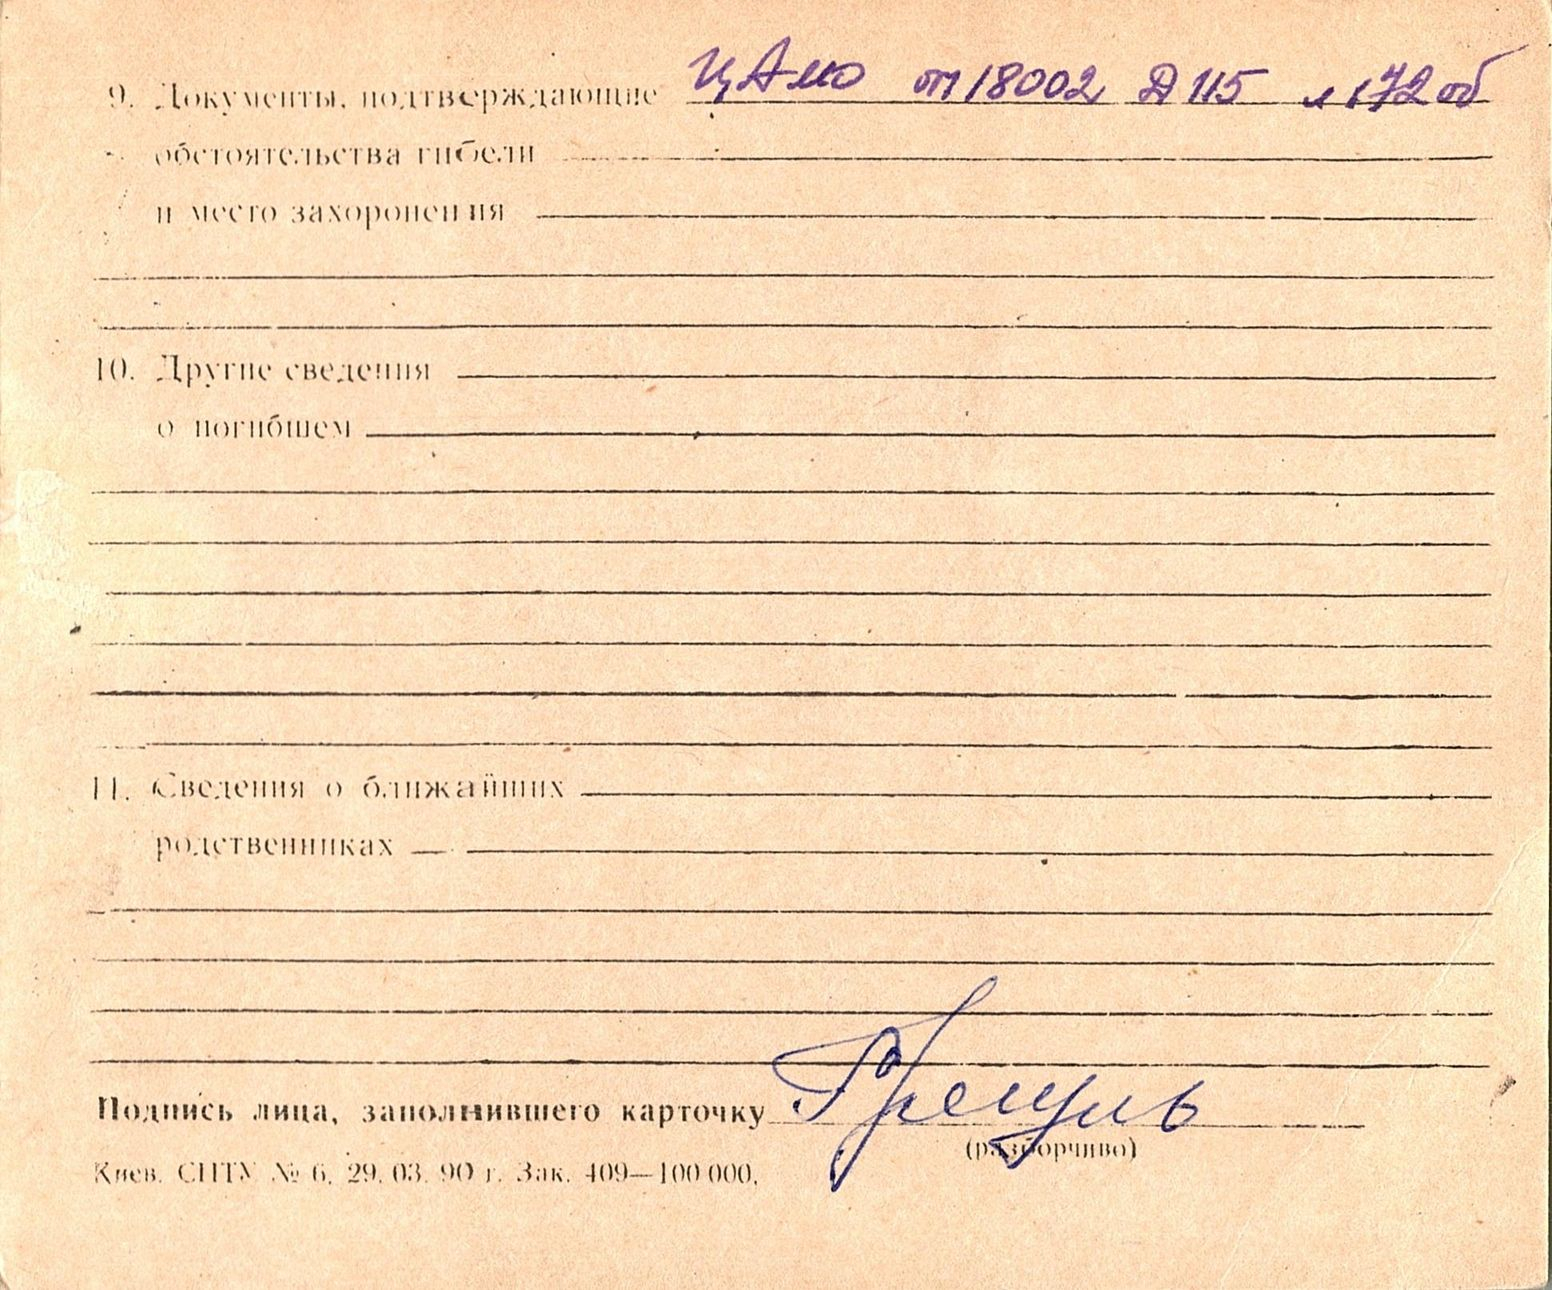 9. Документы, подтверждающие ЦАМО оп 18002 Д 115 л 172 об
обстоятельства гибели
и место захоронения
10. Другие сведения
о погибшем
11. Сведения о ближайших
родственниках
Подпись лица, заполнившего карточку
(разборчиво)
Киев. СПТУ № 6, 29.03.90 г. Зак. 409—100 000,